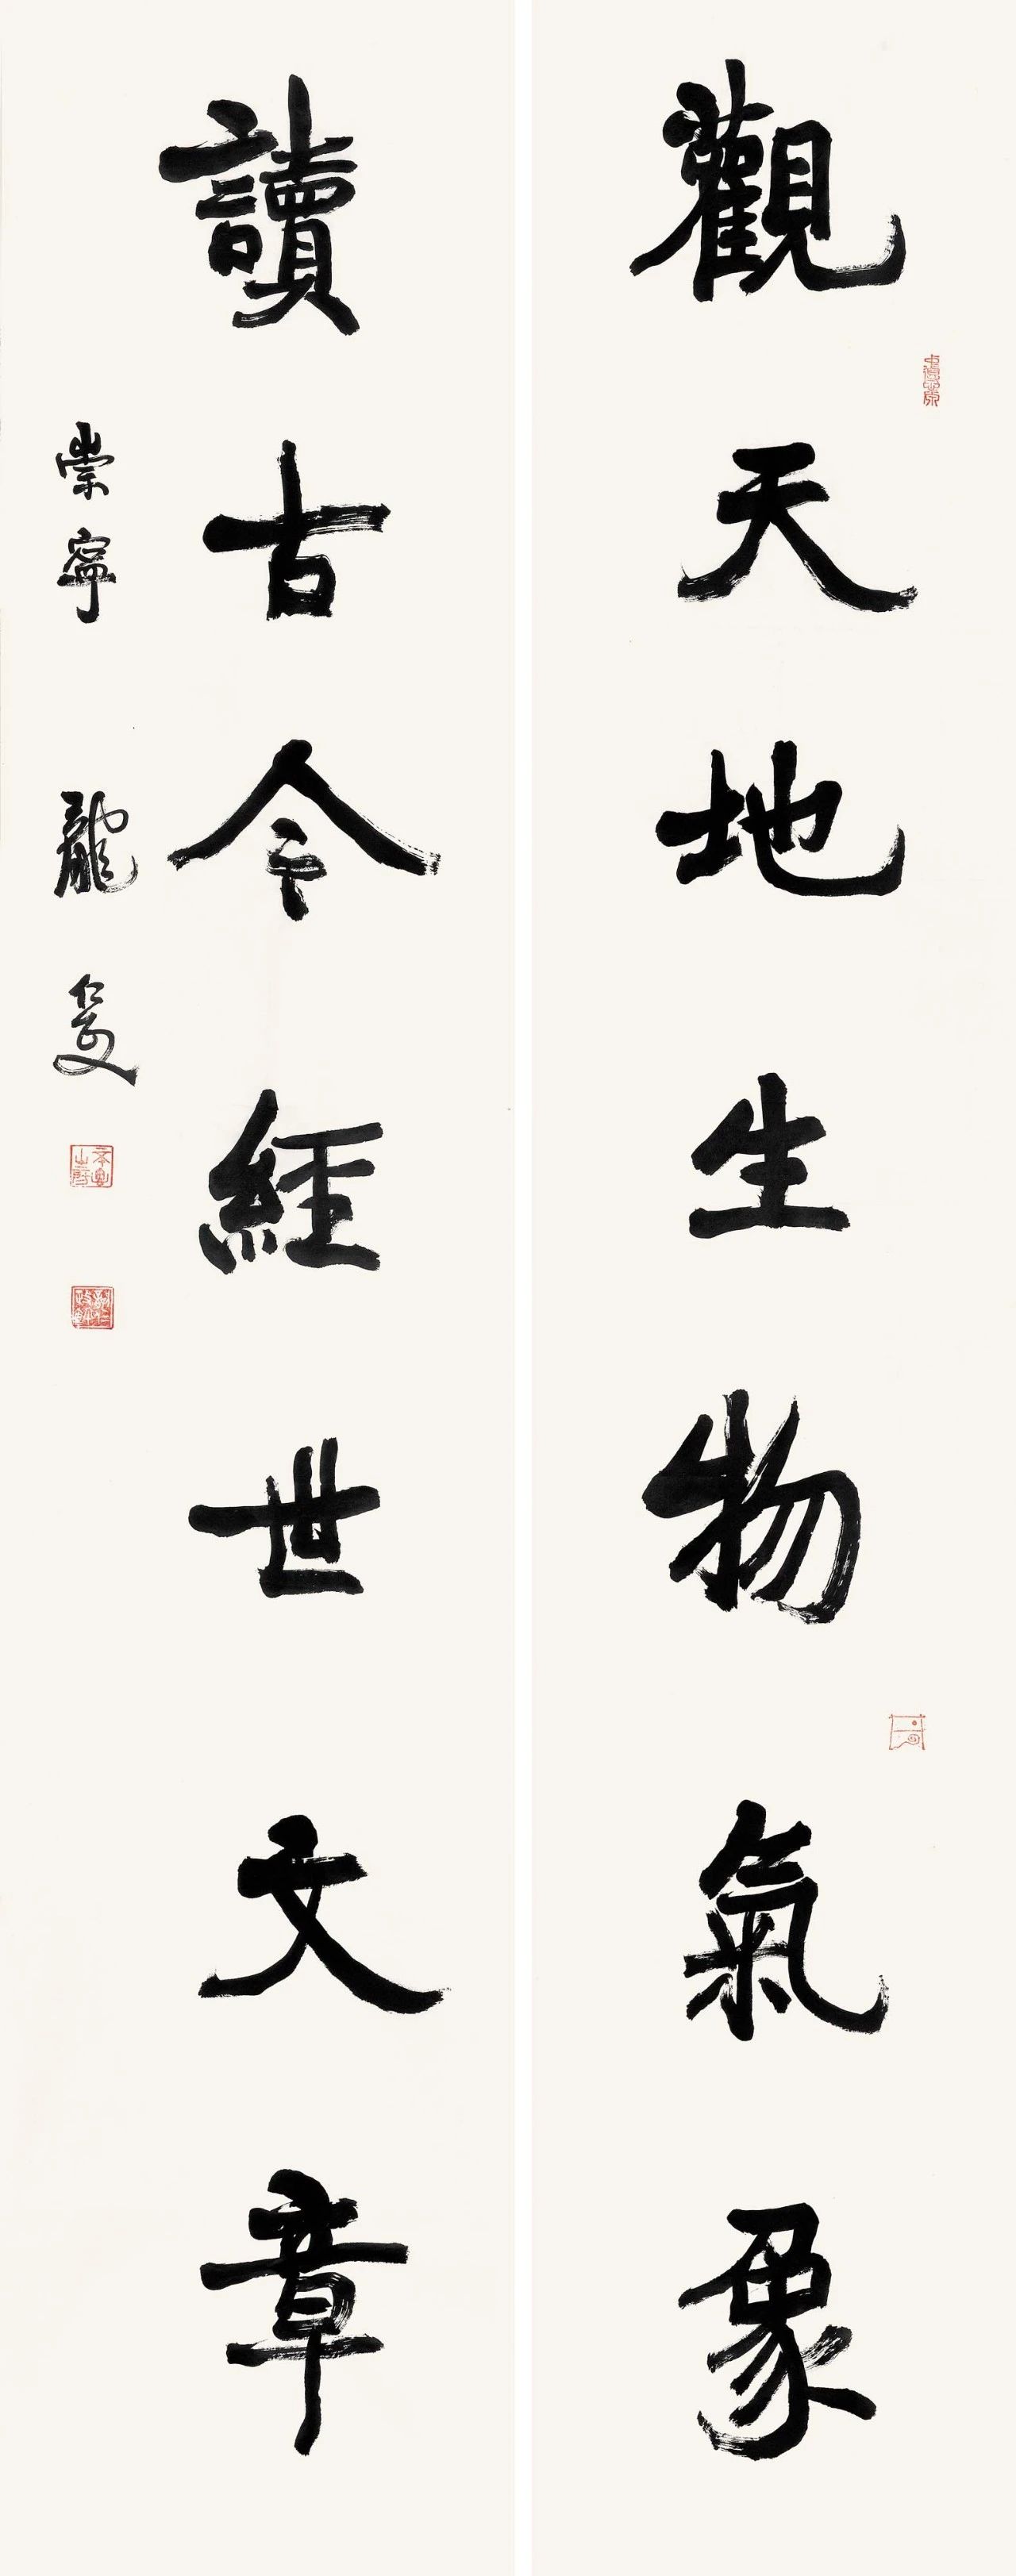 觀天地生物氣象
讀古今經世文章
崇寧 龍仁叟